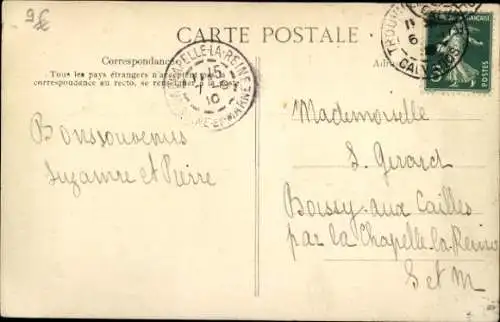 9€
CARTE POSTALE
Correspondance
Tous les pays étrangers n'acceptent pas
correspondance au recto, se renseigner
CHAPELLE-LA-REINE
15
10
SEINE-ET-MARNE
Adr
TROUVILLE
11
6
CALVADOS
POSTES
Mademoiselle
S. Gerard
Boissy-aux Cailles
par la Chapelle-la-Reine
S et M
Bons souvenirs
Suzanne et Pierre